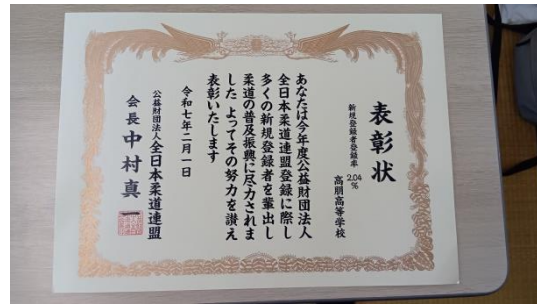 表彰状
新規登録者登録率 2.04%
高朋高等学校
あなたは今年度公益財団法人
全日本柔道連盟登録に際し
多くの新規登録者を輩出し
柔道の普及振興に尽力されま
した よってその努力を讃え
表彰いたします
令和七年二月一日
公益財団法人全日本柔道連盟
会長 中村真一